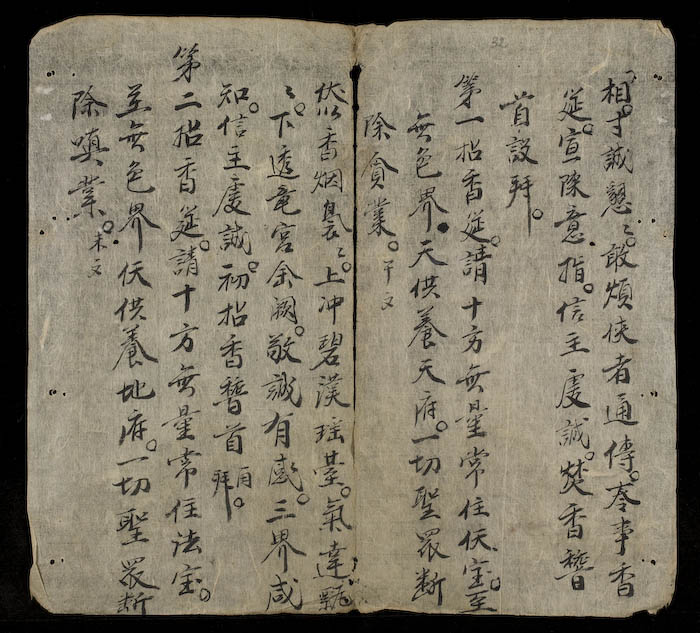 相。寸誠懇〻。敢煩侠者通傳。夲事香
筵。宣除意指。信主虔誠。焚香嘗
首設拜。
第一拈香筵。請十方無量常住仸宝。至
無色界。天供養天府。一切聖眾断
除貪業。干文
依香烟裊〻。上冲碧漢瑶䑓。氣達
〻。下透竜宮金闕。敬誠有感。三界咸
知。信主虔誠。初拈香嘗首 拜。
第二拈香筵。請十方無量常住法宝。
至無色界仸供養地府。一切聖眾断
除嗔業。未文
32